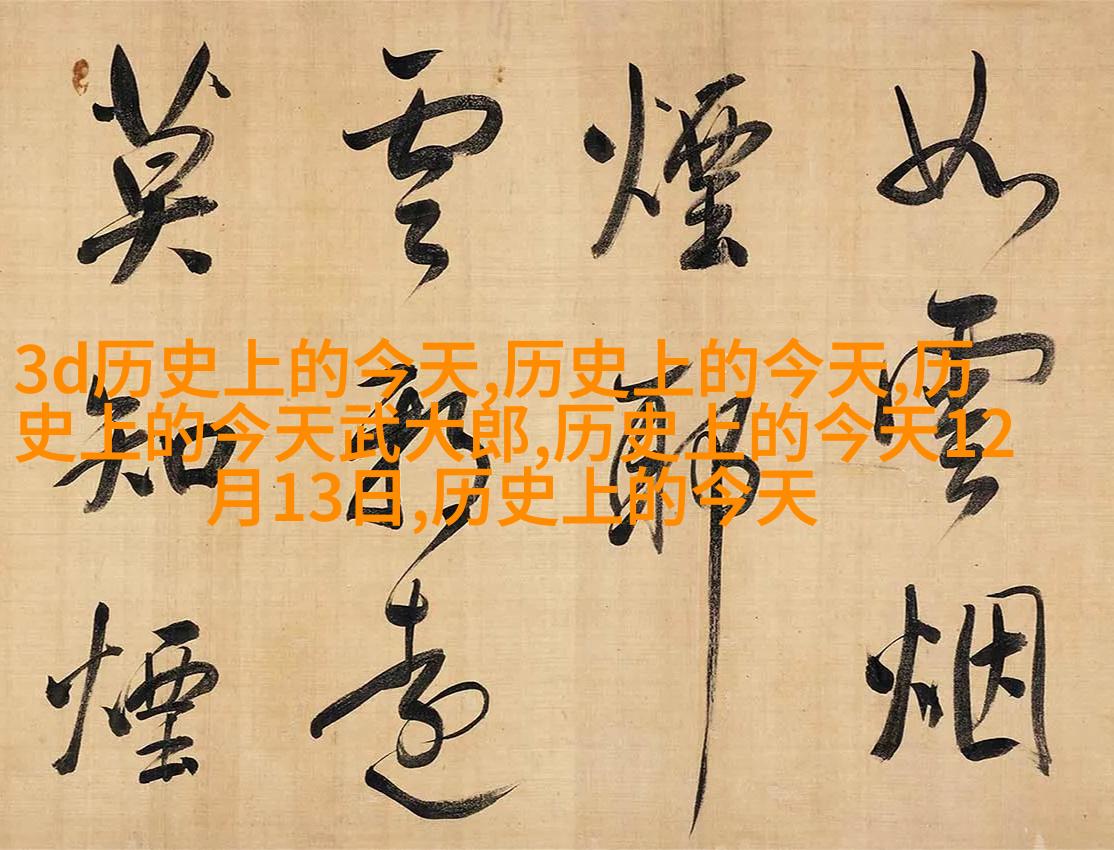 3d历史上的今天,历史上的今天,历
史上的今天武大郎,历史上的今天12
月13日,历史上的今天
如雲烟
煙
雲遠
莫知煙